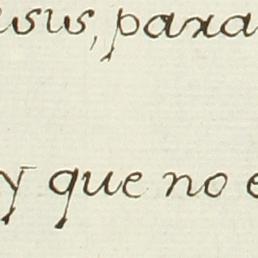 esus, para
y que no e